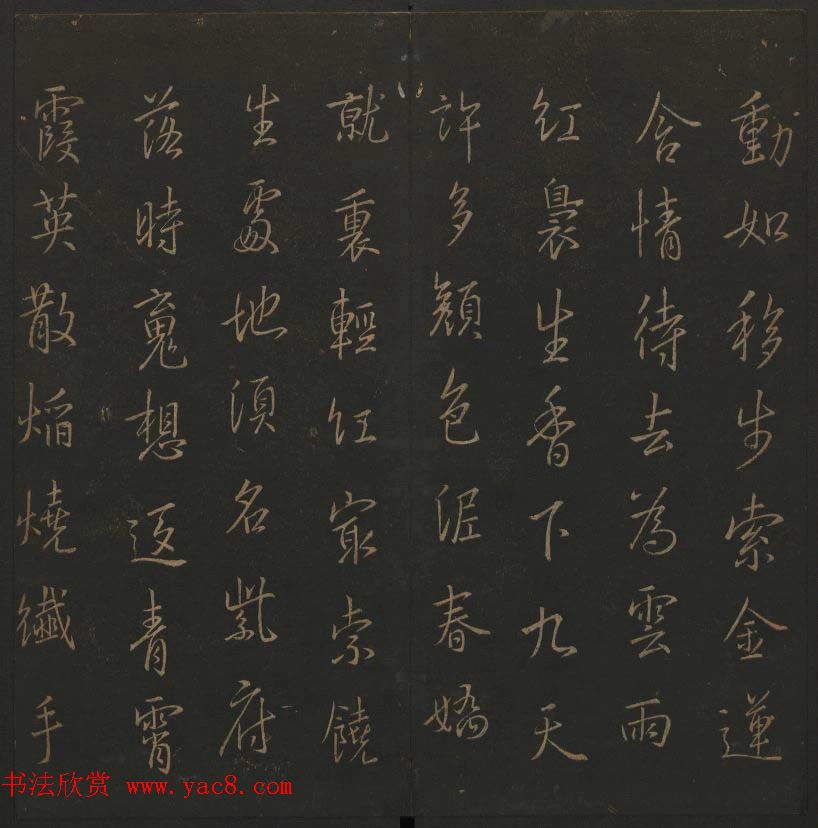 動如移步索金蓮
含情待去為雲雨
紅裊生香下九天
許多顏色泥春嬌
就裏輕紅最索饒
生處地須名紫府
落時魂想返青霄
霞英散焰燒纖手
书法欣赏 www.yac8.com